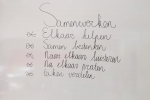 Samenwerken
Elkaar helpen
Samen bedenken
Naar elkaar luisteren
Na elkaar praten
Taken verdelen